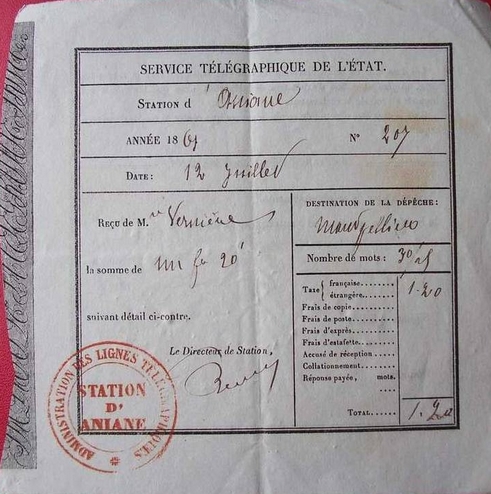 SERVICE TÉLÉGRAPHIQUE DE L'ÉTAT.
STATION d'Aniane
ANNÉE 186 N° 207
DATE: 12 Juillet
REÇU DE M. Vernière
la somme de un fr 20
suivant détail ci-contre.
Le Directeur de Station,
DESTINATION DE LA DÉPÊCHE:
Montpellier
Nombre de mots: 30
Taxe { française........ 1-20
étrangère........
Frais de copie........
Frais de poste........
Frais d'exprès........
Frais d'estafette........
Accusé de réception......
Collationnement........
Réponse payée, mots.
....
TOTAL...... 1.20
ADMINISTRATION DES LIGNES TÉLÉGRAPHIQUES
STATION
D'
ANIANE